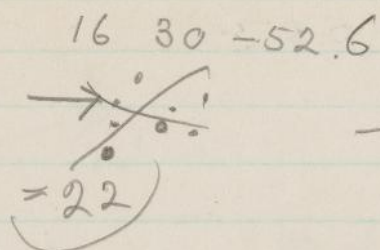 16 30 -52.6
= 22